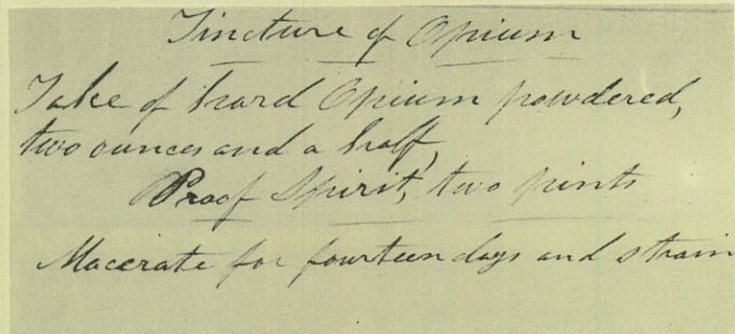 Tincture of Opium
Take of hard Opium powdered,
two ounces and a half,
Proof Spirit, two pints
Macerate for fourteen days and strain